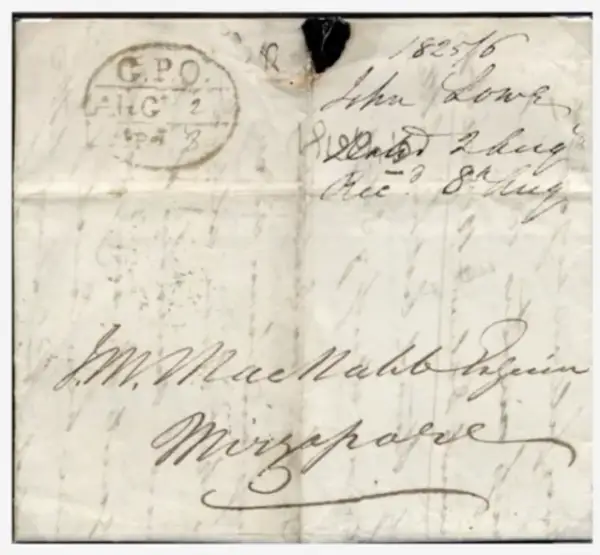 G.P.O.
AUG 2
1825/6
John Lowe
2 Aug
Rec.d 8th Aug
J. M. MacNabb Esquire
Mirzapore